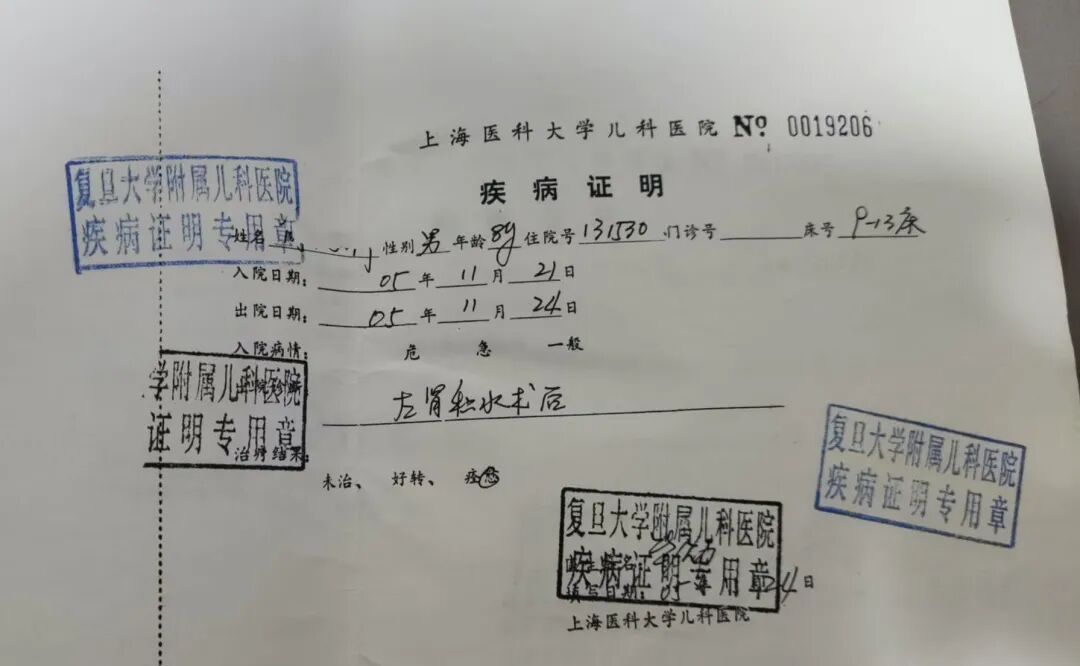 上海医科大学儿科医院 No 0019206
疾病证明
复旦大学附属儿科医院
疾病证明专用章
姓名 性别 男 年龄 8y 住院号 131530 门诊号 床号 9-13床
入院日期: 05 年 11 月 21 日
出院日期: 05 年 11 月 24 日
入院病情: 危 急 一般
学附属儿科医院
证明专用章
左肾积水术后
治疗结果:
未治、 好转、 痊愈
复旦大学附属儿科医院
疾病证明专用章
复旦大学附属儿科医院
疾病证明专用章
填写日期: 05 24 日
上海医科大学儿科医院